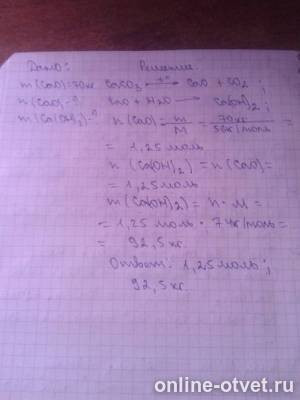 Дано: Решение.
m(CaO)=70кг CaCO₃ →t° CaO + CO₂ ;
n(CaO)-? CaO + H₂O → Ca(OH)₂ ;
m(Ca(OH)₂)-? n(CaO) = m/M = 70кг/56кг/моль =
= 1,25 моль
n(Ca(OH)₂) = n(CaO) =
= 1,25 моль
m(Ca(OH)₂) = n · M =
= 1,25 моль · 74кг/моль =
= 92,5 кг.
Ответ: 1,25 моль ;
92,5 кг.
online-otvet.ru